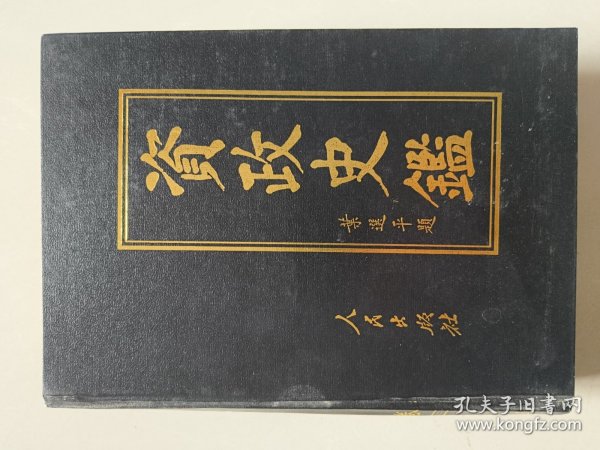 資政史鑑
葉選平題
人民出版社
孔夫子旧书网
www.kongfz.com